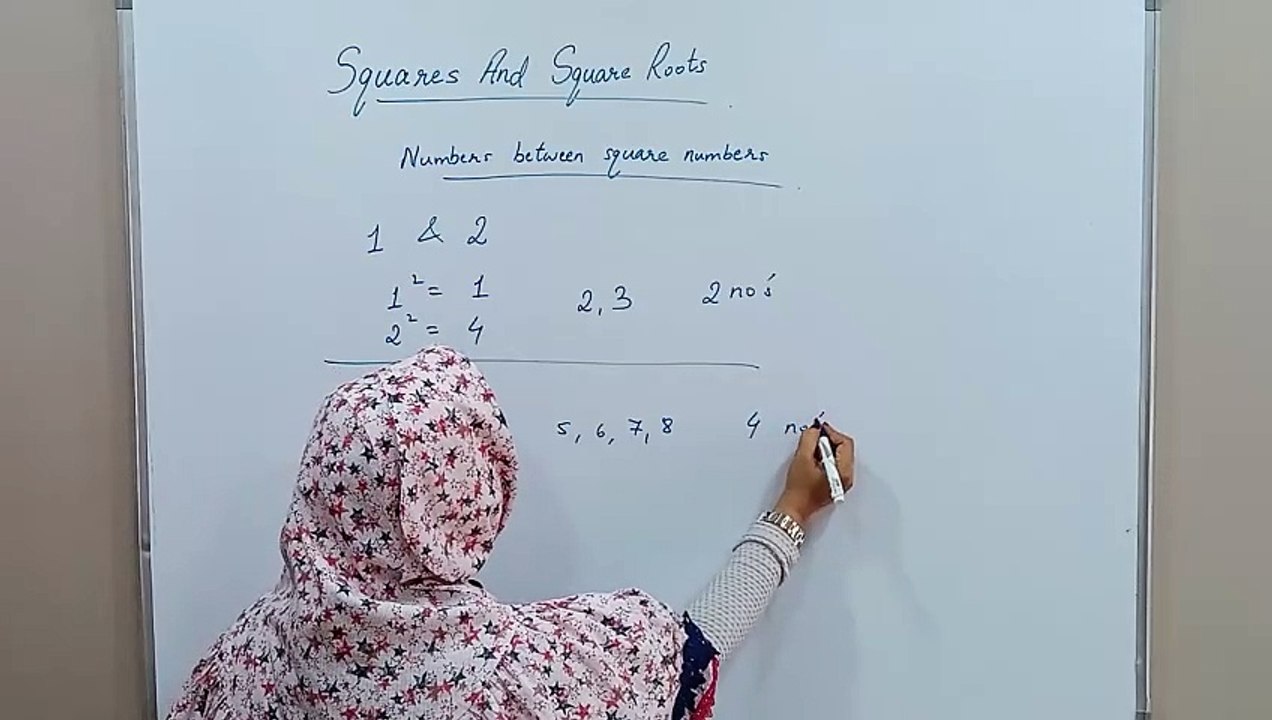 Squares And Square Roots
Numbers between square numbers
1 & 2
1² = 1 2, 3 2 no's
2² = 4
5, 6, 7, 8 4 no's